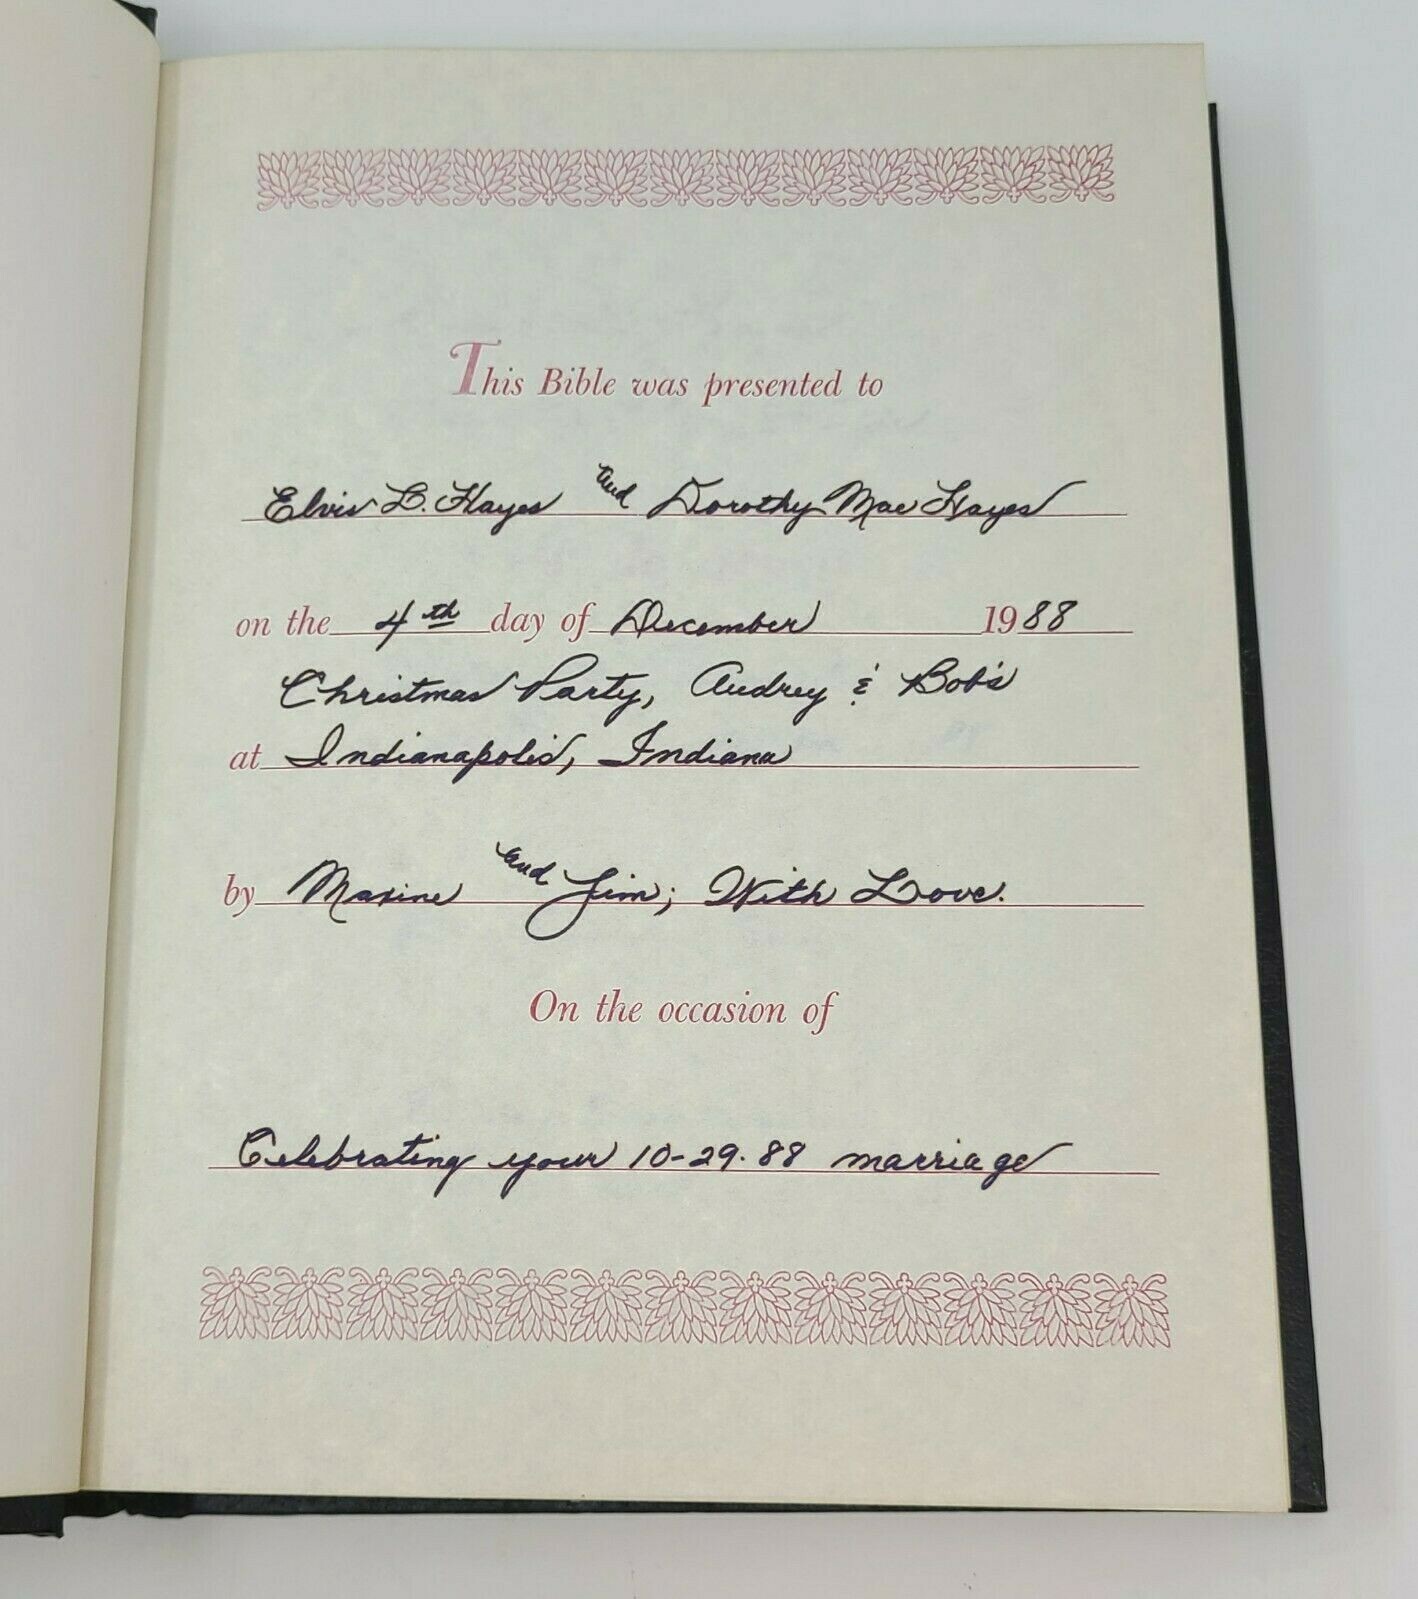 This Bible was presented to
Elvis L. Hayes and Dorothy Mae Hayes
on the 4th day of December 1988
Christmas Party, Audrey & Bob's
at Indianapolis, Indiana
by Maxine and Jim; With Love.
On the occasion of
Celebrating your 10-29-88 marriage